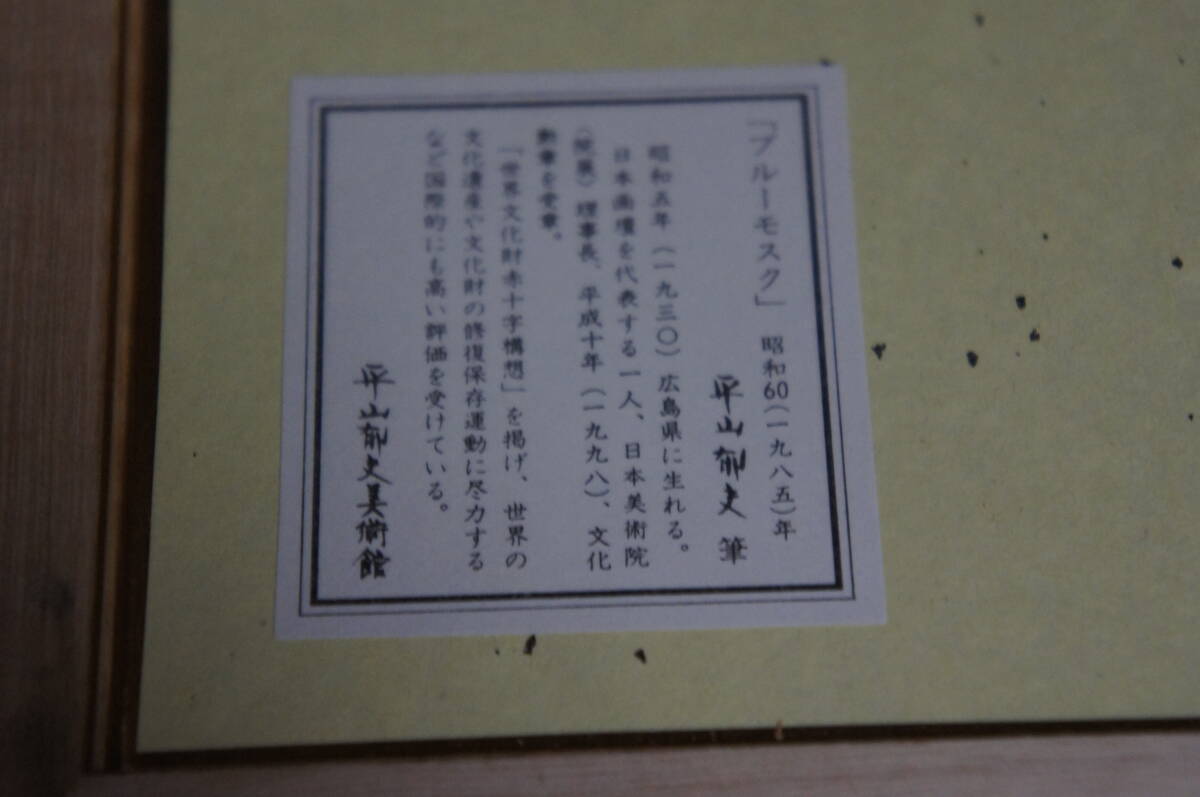 「ブルーモスク」 昭和60(一九八五)年
平山郁夫 筆
昭和五年(一九三〇)広島県に生れる。
日本画壇を代表する一人、日本美術院
(院展)理事長、平成十年(一九九八)、文化
勲章を受章。
「世界文化財赤十字構想」を掲げ、世界の
文化遺産や文化財の修復保存運動に尽力する
など国際的にも高い評価を受けている。
平山郁夫美術館